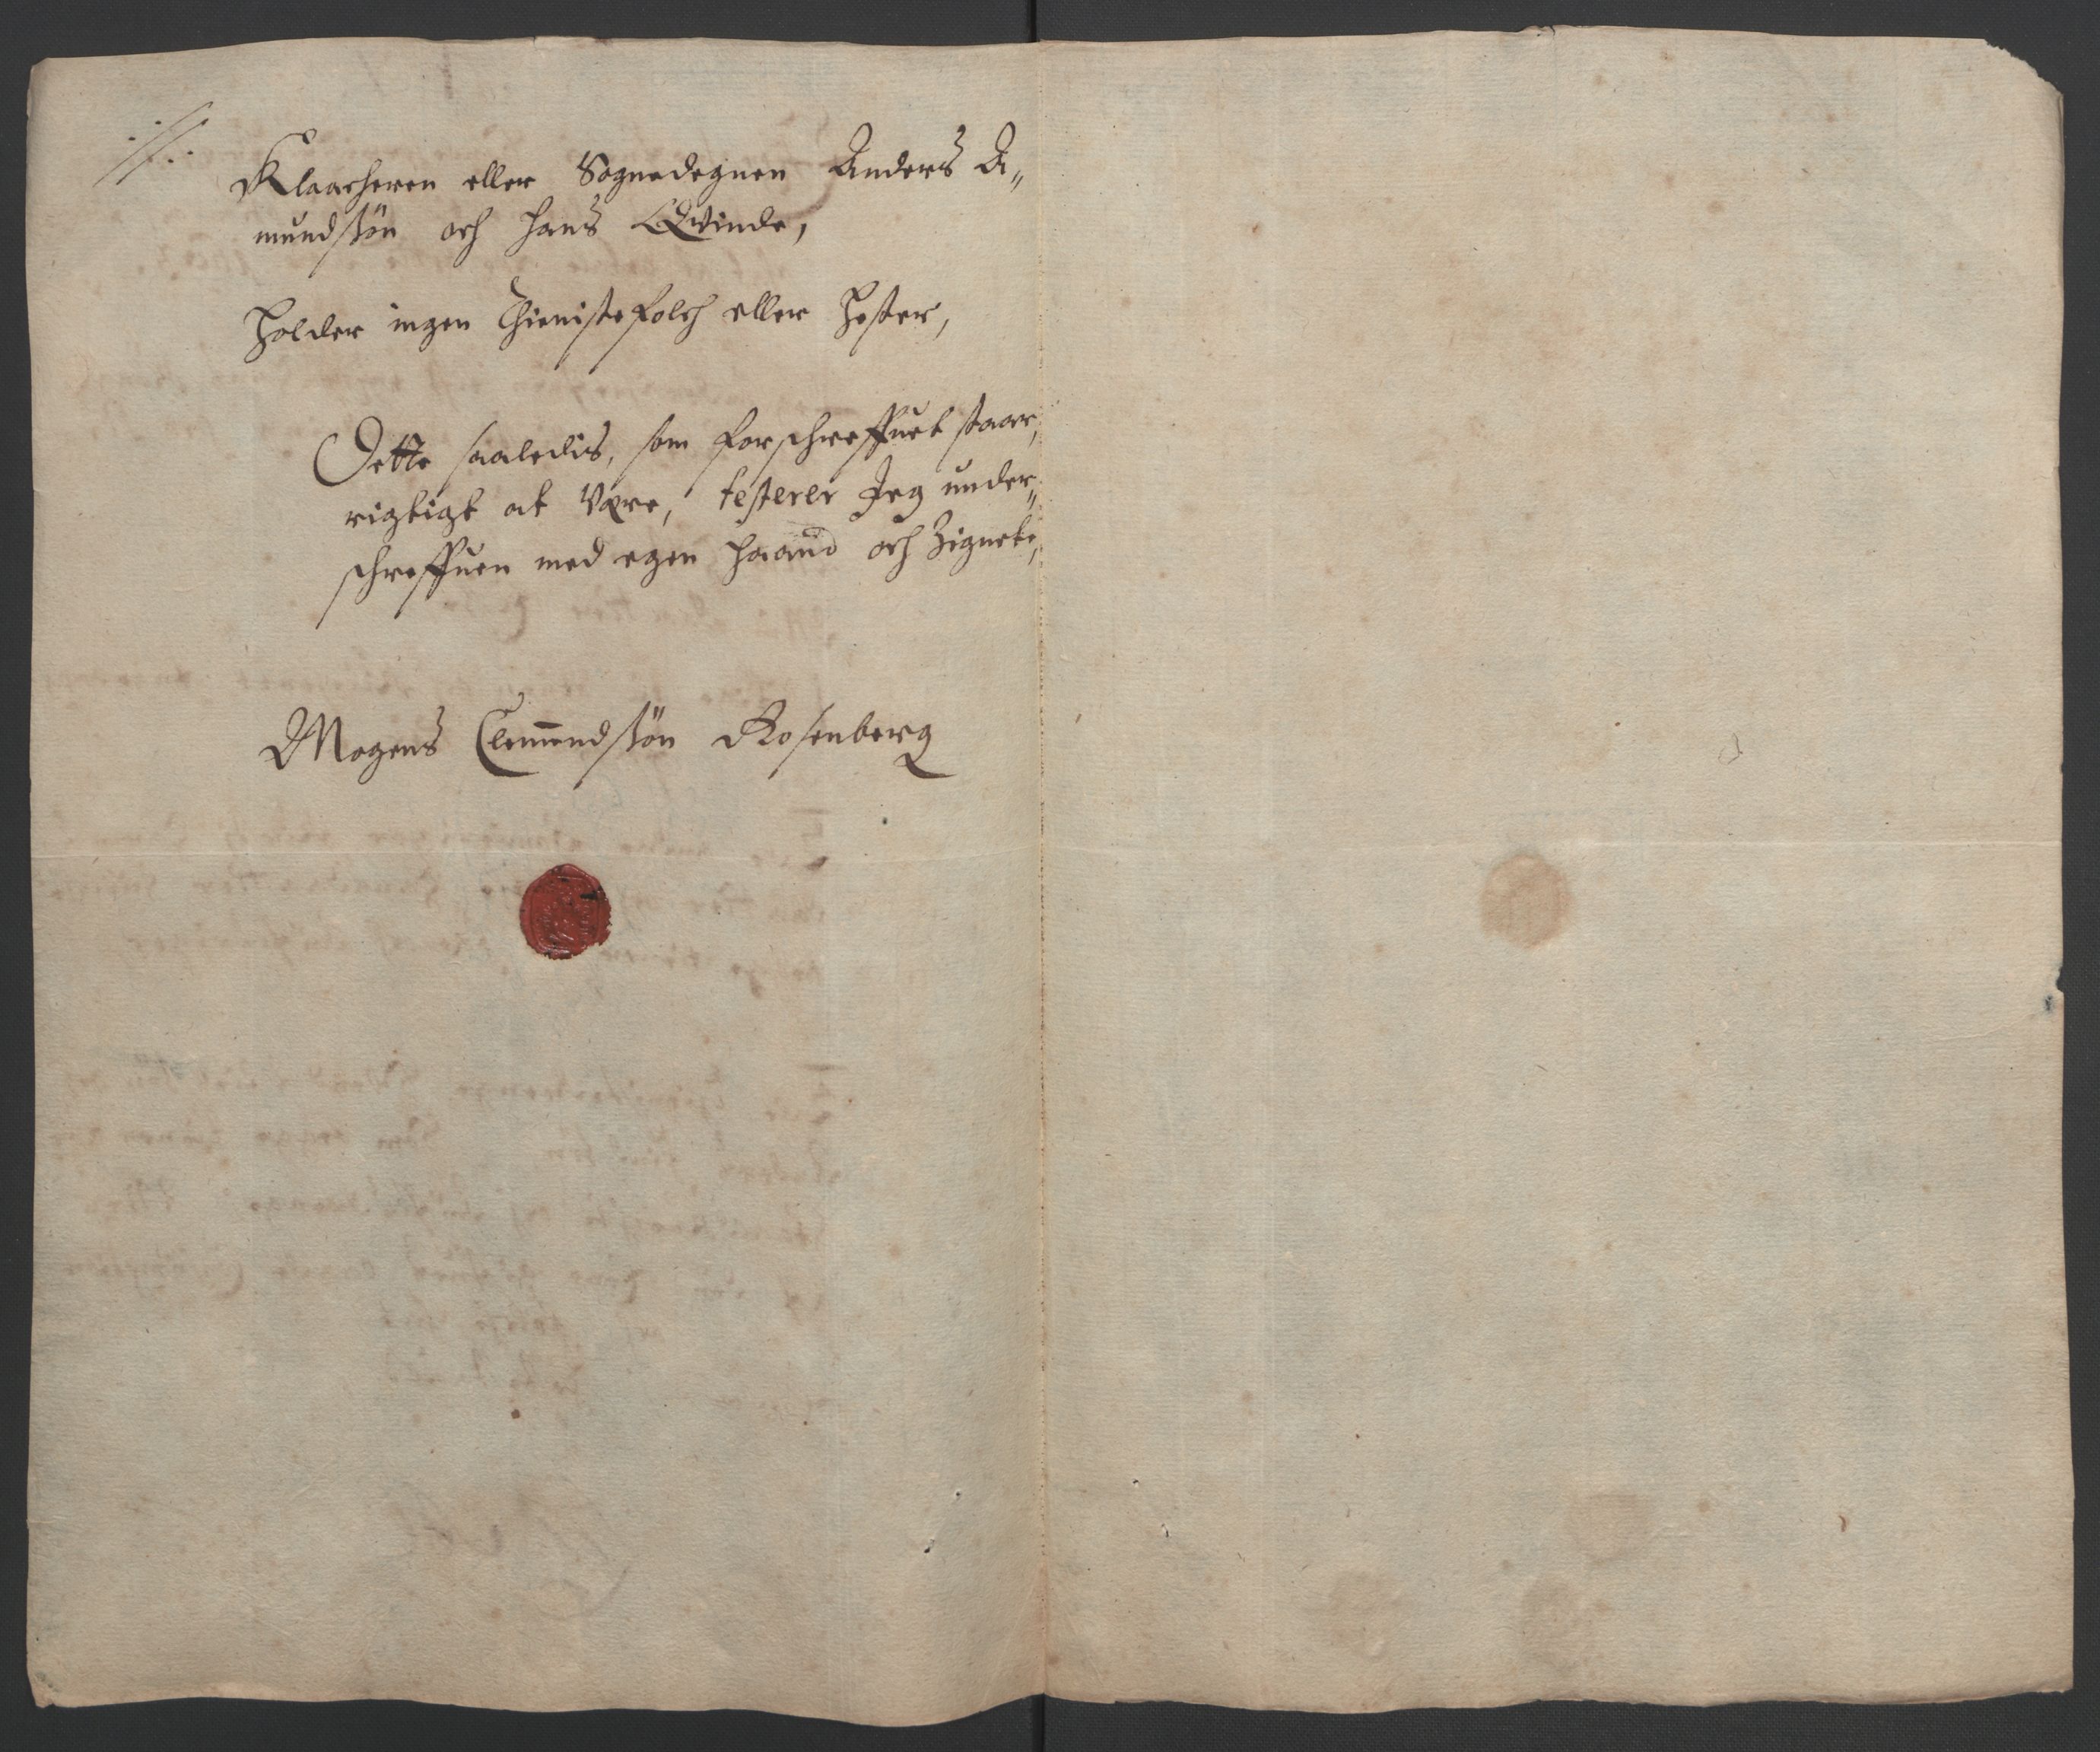 ·//·
Klaacheren eller Sognedegnen Anders A„
mundsøn och hans Qvinde,
Holder ingen Thienistefolch eller Hester,
Dette saaledis, som forschreffuet staar,
rigtigt at være, testerer Jeg under„
schreffuen med egen Haand och Zignete,
Mogens Clem̄endsøn Rosenberg